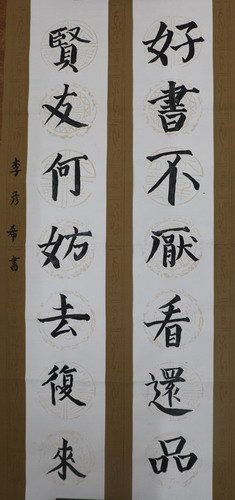 好書不厭看還品
賢友何妨去復來
李彦希書